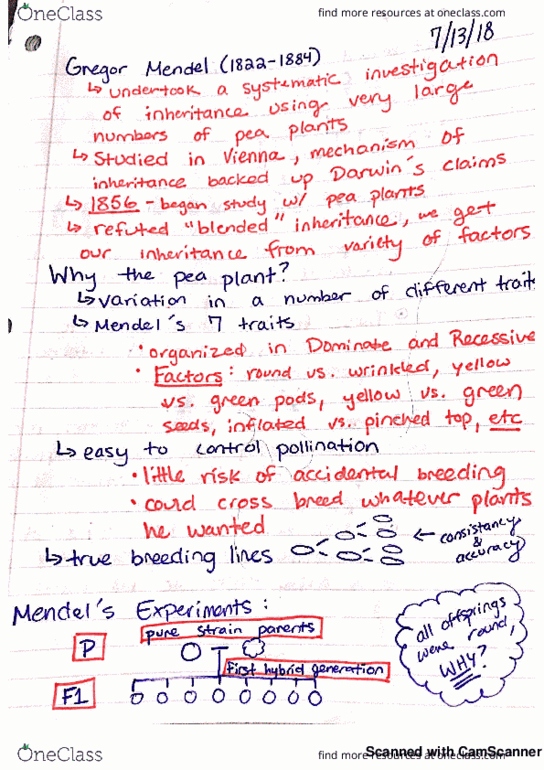 OneClass
find more resources at oneclass.com
7/13/18
Gregor Mendel (1822-1884)
↳ undertook a systematic investigation
of inheritance using very large
numbers of pea plants
↳ Studied in Vienna, mechanism of
inheritance backed up Darwin's claims
↳ 1856 - began study w/ pea plants
↳ refuted "blended" inheritance, we get
our inheritance from variety of factors
Why the pea plant?
↳ variation in a number of different traits
↳ Mendel's 7 traits
• organized in Dominate and Recessive
• Factors: round vs. wrinkled, yellow
vs. green pods, yellow vs. green
seeds, inflated vs. pinched top, etc
↳ easy to control pollination
• little risk of accidental breeding
• could cross breed whatever plants
he wanted
↳ true breeding lines
← consistancy
&
accuracy
Mendel's Experiments:
pure strain parents
P
first hybrid generation
F1
all offsprings
were round,
WHY?
OneClass
find more resources at oneclass.com
Scanned with CamScanner